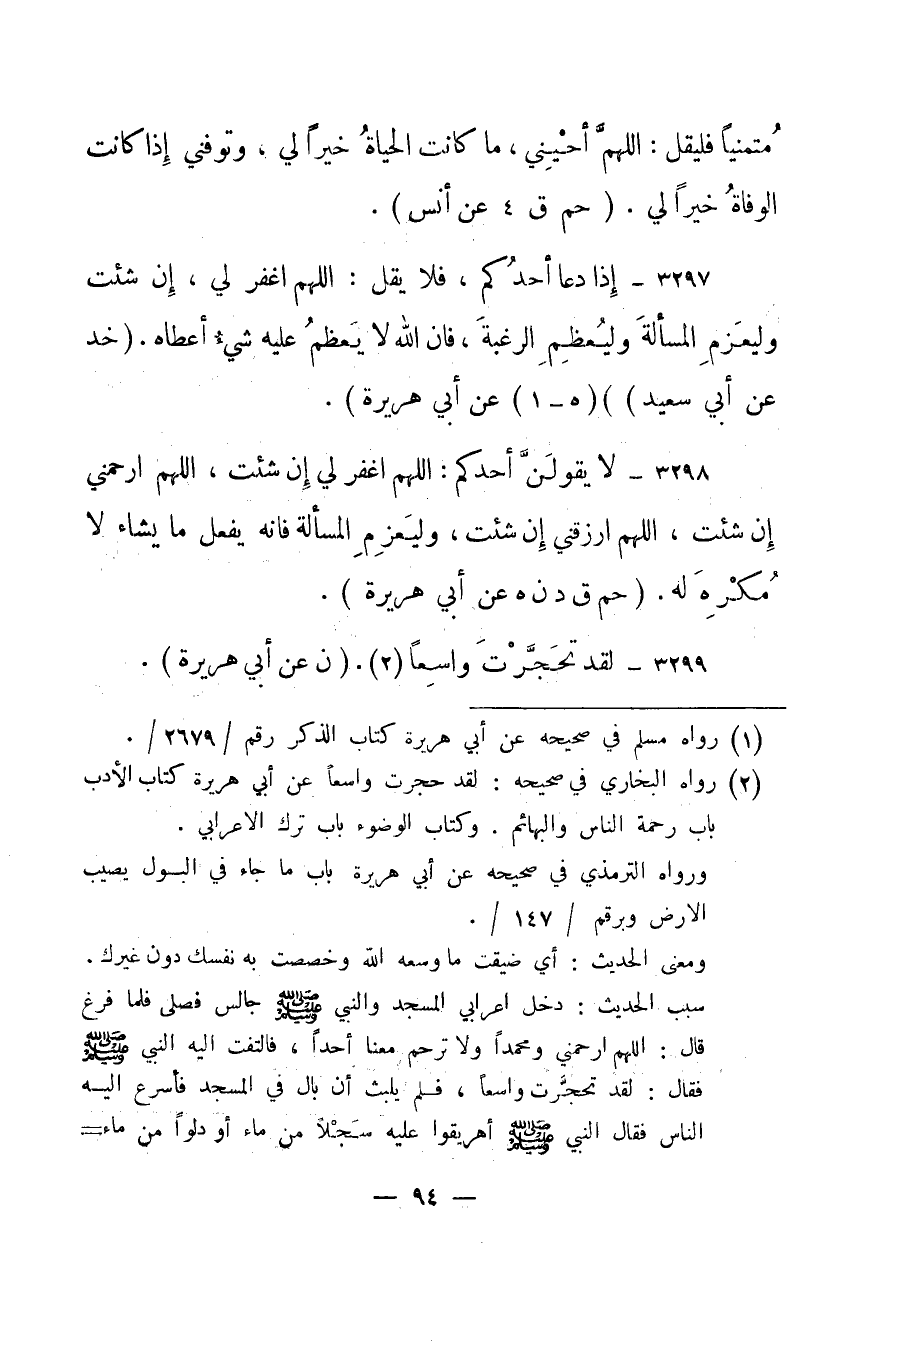 مُتمنياً فليقل : اللهمَّ أحْيِني ، ما كانت الحياةُ خيراً لي ، وتوفني إذا كانت
الوفاةُ خيراً لي . ( حم ق ٤ عن أنس ) .
٣٢٩٧ ـ إذا دعا أحدُكم ، فلا يقل : اللهم اغفر لي ، إن شئت
وليعَزمِ المسألةَ وليُعظِمِ الرغبةَ ، فان الله لا يَعظمُ عليه شيءٌ أعطاه . ( خد
عن أبي سعيد ) )( ٥ ـ ١ ) عن أبي هريرة ) .
٣٢٩٨ ـ لا يقولَنَّ أحدكم : اللهم اغفر لي إن شئت ، اللهم ارحمني
إن شئت ، اللهم ارزقني إن شئت ، وليَعزِمِ المسألة فانه يفعل ما يشاء لا
مُكْرِهَ له . ( حم ق د ن ه عن أبي هريرة ) .
٣٢٩٩ ـ لقد تحَجَّرْتَ واسِعاً (٢) . ( ن عن أبي هريرة ) .
(١) رواه مسلم في صحيحه عن أبي هريرة كتاب الذكر رقم / ٢٦٧٩ / .
(٢) رواه البخاري في صحيحه : لقد حجرت واسعاً عن أبي هريرة كتاب الأدب
باب رحمة الناس والبهائم . وكتاب الوضوء باب ترك الاعرابي .
ورواه الترمذي في صحيحه عن أبي هريرة باب ما جاء في البـول يصيب
الارض وبرقم / ١٤٧ / .
ومعنى الحديث : أي ضيقت ما وسعه الله وخصصت به نفسك دون غيرك .
سبب الحديث : دخل اعرابي المسجد والنبي ﷺ جالس فصلى فلما فرغ
قال : اللهم ارحمني ومحمداً ولا ترحم معنا أحداً ، فالتفت اليه النبي ﷺ
فقال : لقد تحجَّرت واسعاً ، فـلم يلبث أن بال في المسجد فأسرع اليـه
الناس فقال النبي ﷺ أهريقوا عليه سَجْلاً من ماء أو دلواً من ماء =
— ٩٤ —